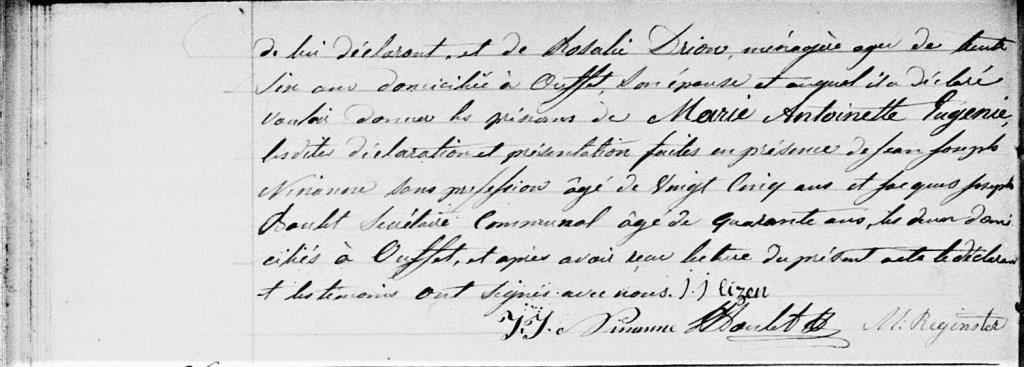 de lui déclarant, et de Rosalie Drion, ménagère agée de trente
six ans domiciliée à Ouffet, son épouse et auquel il a déclaré
vouloir donner les prénoms de Marie Antoinette Eugenie,
lesdites déclaration et présentation faites en présence de Jean Joseph
Ninanne sans profession âgé de Vingt Cinq ans et Jacques Joseph
Secrétaire Communal âgé de quarante ans, les deux domi
ciliés à Ouffet, et après avoir reçu lecture du présent acte le déclarant
et les temoins ont signés avec nous. J. J. Lizen
J. J. Ninanne M. Reginster